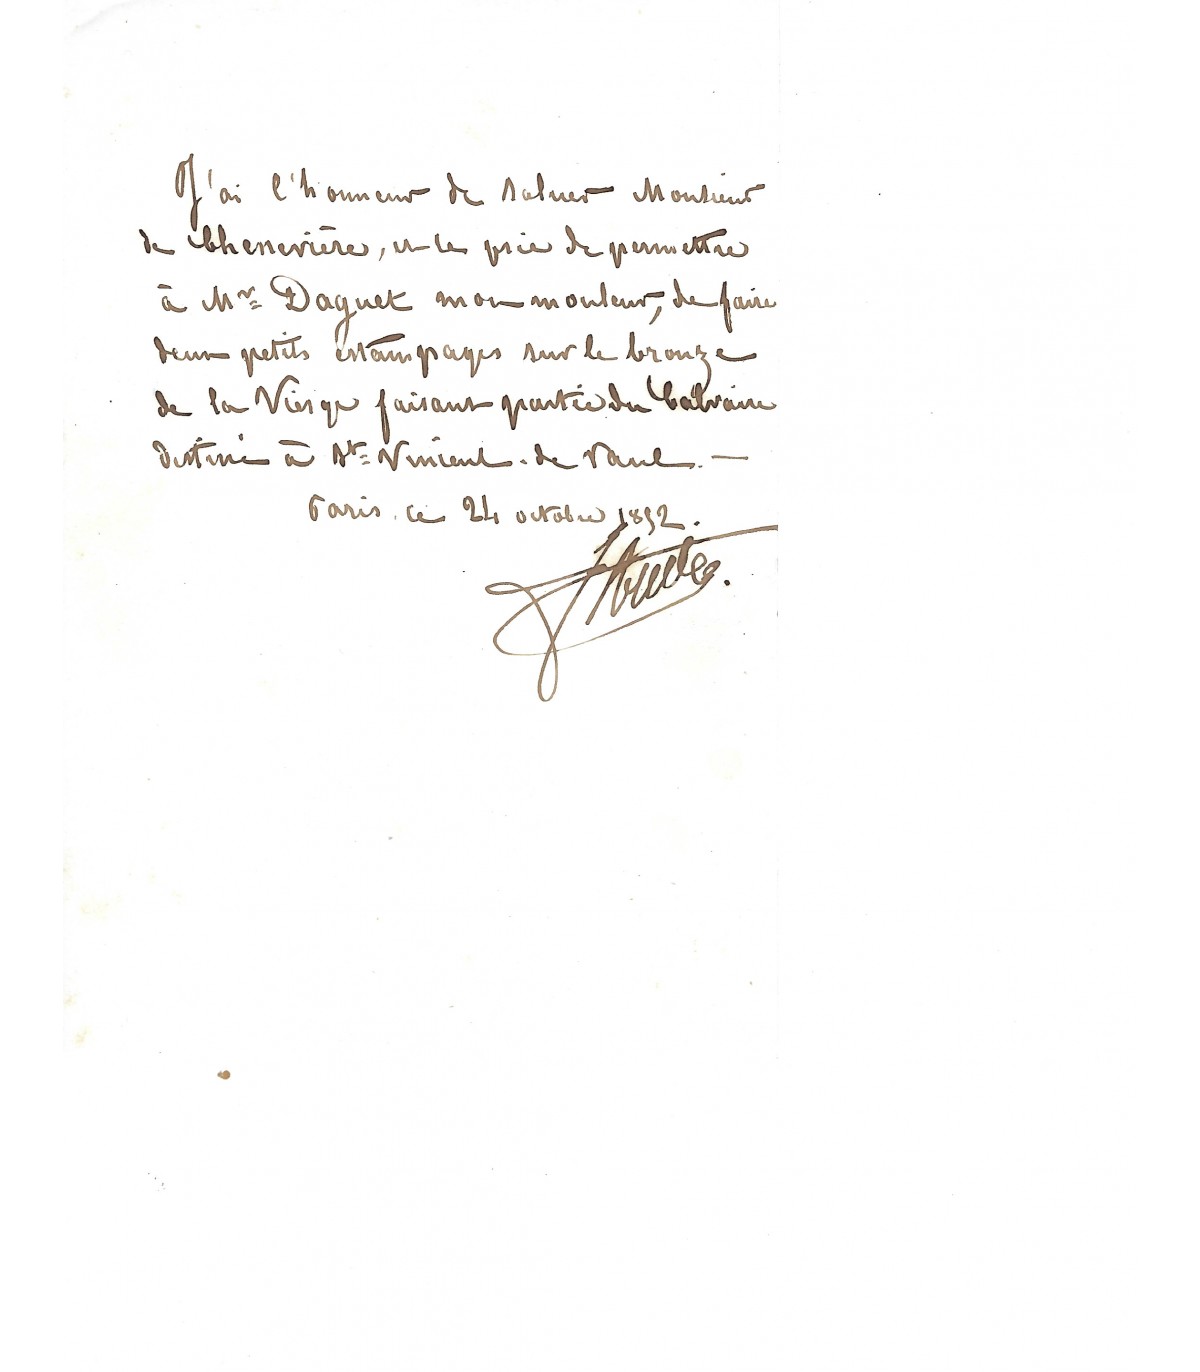 J'ai l'honneur de saluer Monsieur
de Chenevière, et le prie de permettre
à Mr Daguet mon mouleur, de faire
deux petits estampages sur le bronze
de la Vierge faisant partie du Calvaire
destiné à St Vincent-de Paul. —
Paris ce 24 octobre 1852.
F. Rude.